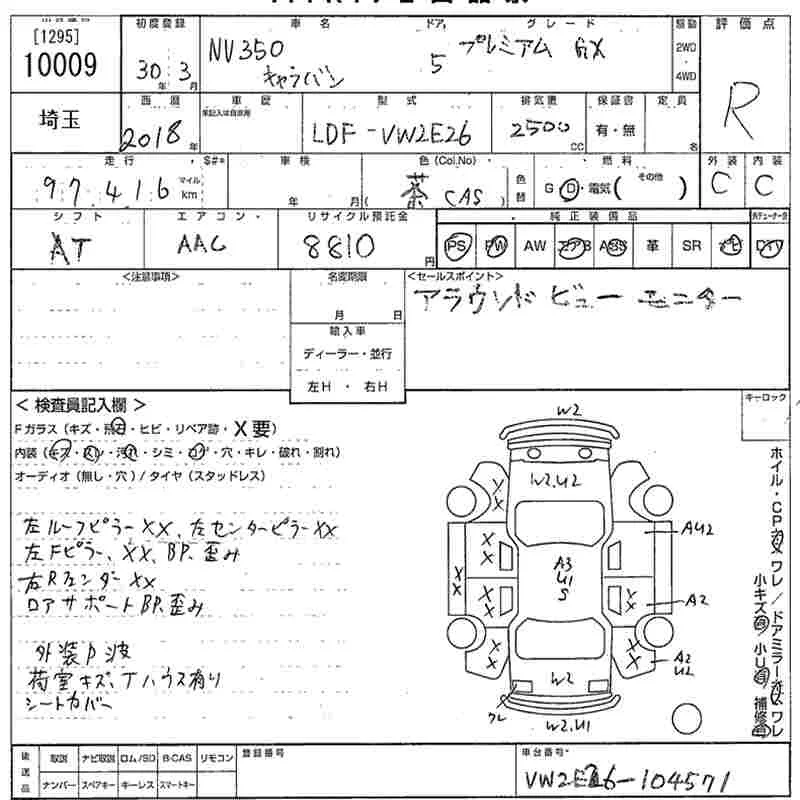 [1295]
10009
初度登録
30年 3月
車名
NV350
キャラバン
ドア
5
グレード
プレミアム GX
駆動
2WD
・
4WD
評価点
R
埼玉
西暦
2018年
車歴
未記入は自家用
型式
LDF-VW2E26
排気量
2500
CC
保証書
有・無
定員
名
走行
97416
マイル
km
S#*
車検
年 月
色(Col.No)
茶 (CAS)
色替
燃料
G D・電気( その他 )
外装
C
内装
C
シフト
AT
エアコン
AAC
リサイクル預託金
8810円
純正装備品
PS PW AW エアB ABS 革 SR ナビ
DTV
<注意事項>
名変期限
月 日
輸入車
ディーラー・並行
左H・右H
<セールスポイント>
アラウンド ビュー モニター
＜ 検査員記入欄 ＞
Fガラス(キズ・飛石・ヒビ・リペア跡・X要)
内装(キズ・スレ・汚れ・シミ・コゲ・穴・キレ・破れ・割れ)
オーディオ(無し・穴)/タイヤ(スタッドレス)
左ルーフピラーXX、左センターピラーXX
左Fピラー、XX、BP、歪み
右Rフェンダー XX
ロアサポートBP、歪み
外装P波
荷室キズ、Tハウス有り
シートカバー
キーロック
W2
W2.U2
X
X
X
X
X
X
X
X
X
X
A3
U1
S
AU2
X
X
A2
X
X
A2
U2
W2
ワレ
W2.U1
ホイル・CPカケ ワレ / ドアミラーカケ ワレ
小キズ有 小U有 補修有
後送品
取説 ナビ取説 ロム/SD B-CAS リモコン
ナンバー スペアキー キーレス スマートキー
登録番号
車台番号
VW2E26-104571